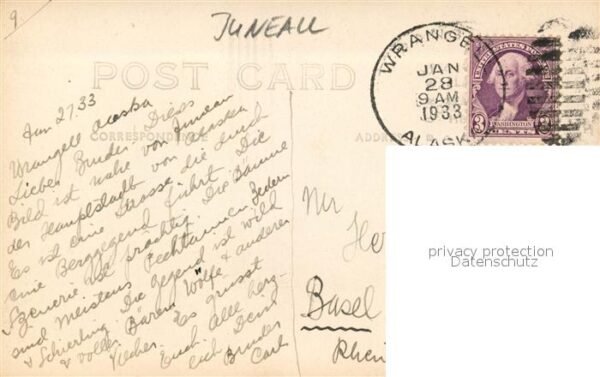 9
JUNEAU
WRANGELL
JAN
28
9 AM
1933
ALASKA
UNITED STATES POSTAGE
WASHINGTON
3 CENTS 3
POST CARD
CORRESPONDENCE
ADDRESS
Jan 27.33
Wrangell Alaska
Lieber Bruder. Dieses
Bild ist nahe von Juneau
der Hauptstadt von Alaska
Es ist eine Strasse die durch
eine Berggegend führt. Die
Szenerie ist prächtig. Die Bäume
sind meistens Pechtannen, Zedern
& Schierling. Die Gegend ist wild
& voller Bären Wölfe & anderer
Viecher. Es grüsst
Euch Alle herz-
lich Dein
Bruder
Carl
Mr
He
Basel
Rhein
privacy protection
Datenschutz